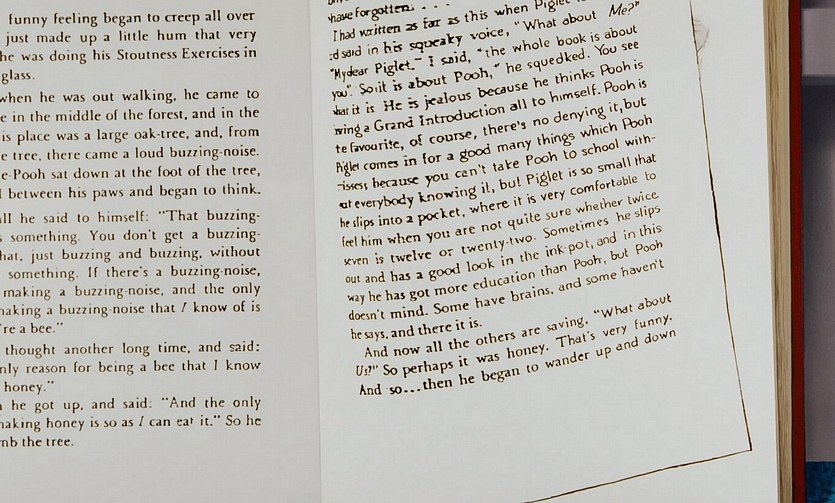 funny feeling began to creep all over
just made up a little hum that very
he was doing his Stoutness Exercises in
glass.
when he was out walking, he came to
e in the middle of the forest, and in the
is place was a large oak-tree, and, from
e tree, there came a loud buzzing-noise.
e-Pooh sat down at the foot of the tree,
between his paws and began to think.
all he said to himself: "That buzzing-
s something. You don't get a buzzing-
hat, just buzzing and buzzing, without
something. If there's a buzzing-noise,
making a buzzing-noise, and the only
making a buzzing-noise that I know of is
're a bee."
thought another long time, and said:
nly reason for being a bee that I know
honey."
he got up, and said: "And the only
making honey is so as I can eat it." So he
mb the tree.
have forgotten. . . .
I had written as far as this when Piglet
d said in his squeaky voice, "What about Me?"
"My dear Piglet," I said, "the whole book is about
you". So it is about Pooh," he squedked. You see
hat it is He is jealous because he thinks Pooh is
ving a Grand Introduction all to himself. Pooh is
te favourite, of course, there's no denying it, but
Piglet comes in for a good many things which Pooh
isses because you can't take Pooh to school with-
ut everybody knowing it, but Piglet is so small that
he slips into a pocket, where it is very comfortable to
feel him when you are not quite sure whether twice
seven is twelve or twenty-two. Sometimes he slips
out and has a good look in the ink-pot, and in this
way he has got more education than Pooh, but Pooh
doesn't mind. Some have brains, and some haven't
he says, and there it is.
And now all the others are saving, "What about
Us?" So perhaps it was honey. That's very funny.
And so...then he began to wander up and down